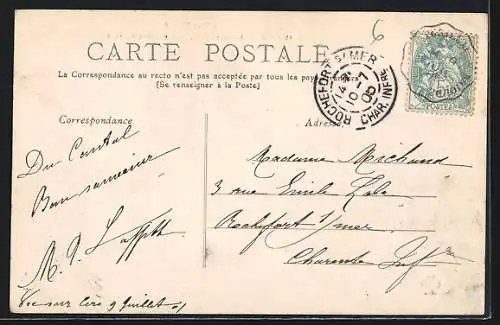 CARTE POSTALE
La Correspondance au recto n'est pas acceptée par tous les pays
(Se renseigner à la Poste)
6
ROCHEFORT S/MER
CHAR. INFRE
10-7
Correspondance
Adresse
Du Cantal
Bon souvenir
Madame Michaud
3 rue Emile Zola
Rochefort s/mer
Charente Infre
Vic sur Cère 9 Juillet